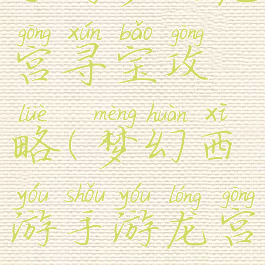 gōng xún bǎo gōng
宫寻宝攻
lüè mèng huàn xī
略(梦幻西
yóu shǒu yóu lóng gōng
游手游龙宫